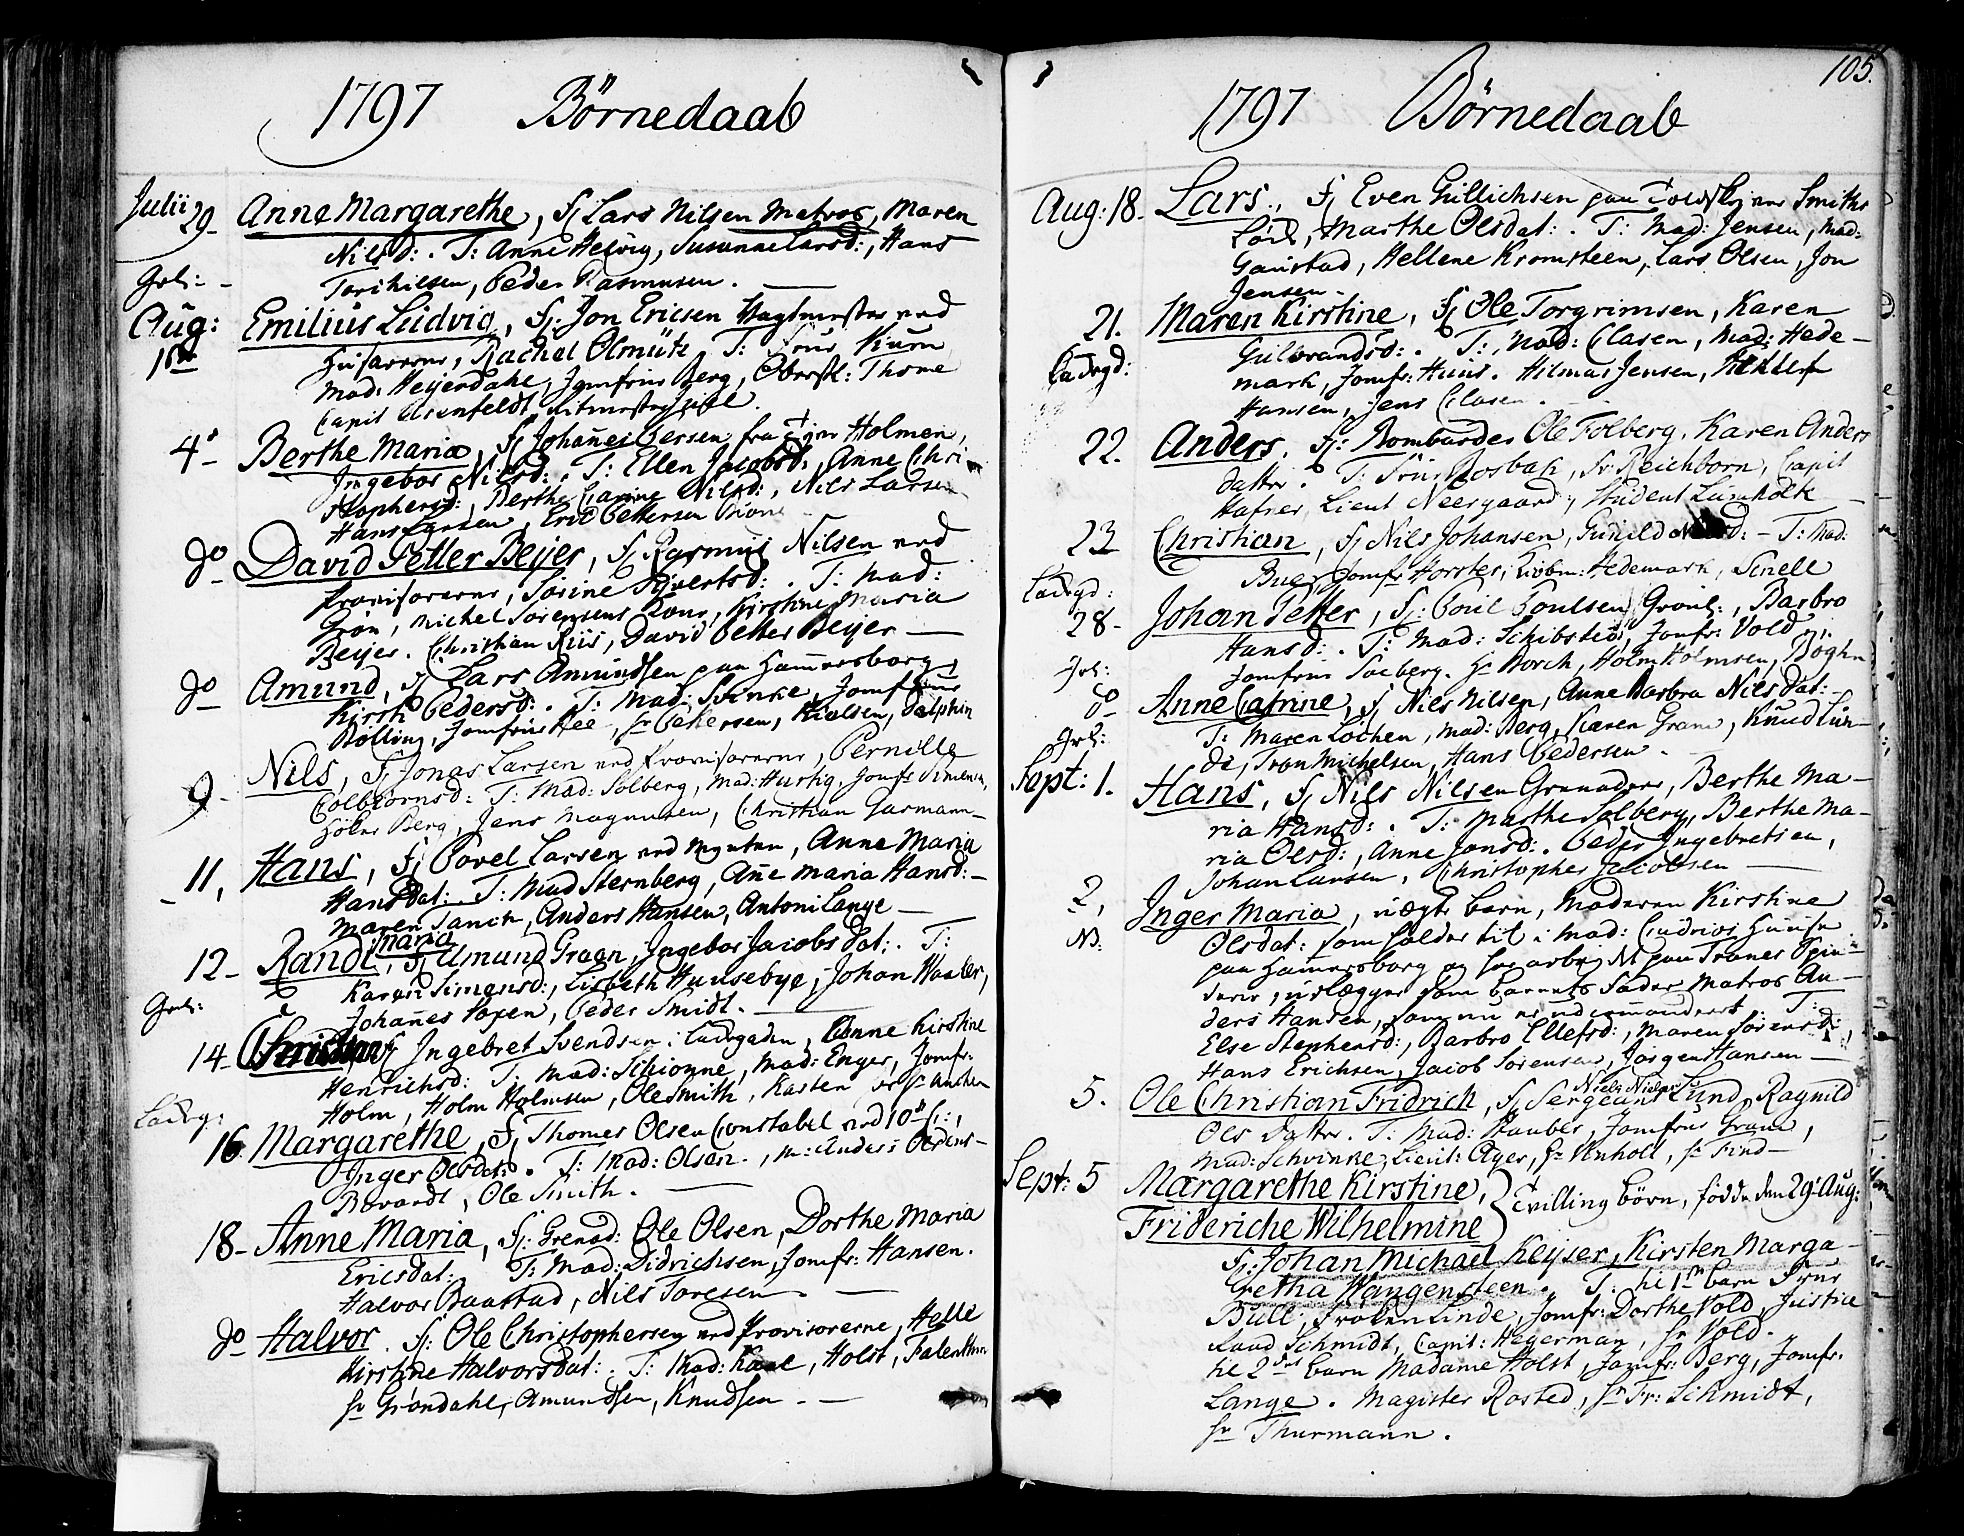 1797 Börnedaab
Julii 29. Anne Margarethe, f: Lars Nilsen Matros, Maren
Nilsd: . T: Anne Helvig, Susanne Larsd:, Hans
Torchilsen, Peder Rasmusen.
Grl:
Aug: 1ste Emilius Ludvig, f: Jon Ericsen Vagtmester ved
Husarerne, Rachel Olmütz. T: Frue Kurn
Mad: Heyerdahl, Jomfrue Berg, Oberstl: Thome
Capit
4de Berthe Maria, f: Johañes fra Holmen,
Ingebor Nilsd: . T: Ellen Jacobsd:, Anne Chri
stophersd:, Berthe Carine Nilsd:, Nils Larsen
Hans Larsen, Eric Pettersen
do David Petter Beyer, f: Rasmus Nilsen ved
Provisorerne, Sorine Sivertsd: . T: Mad:
Gron, Michel Sörensens Kone, Kirstine Maria
Beyer. Christian Riis, David Petter Beyer
do Amund, f: Lars Amundsen paa Hamersborg,
Kirst: Pedersd: . T: Mad: Svinke, Jomfrue
Bölling, Jomfrue Kee, Hr Petersen, Nielsen, Delphin
9. Nils, f: Jonas Larsen ved Provisorerne, Pernille
Colbiörnsd: T: Mad: Solberg, Mad: Hustig, Jomfr Simensen,
Höker Berg, Jens Magnusen, Christian Garmann
11, Hans, f: Povel Larsen ved Mynten, Anne Maria
Hansdat: T: Mad Sternberg, Añe Maria Hansd:
Maren Tanch, Anders Hansen, Antoni Lange
12. Randi Maria, f: Amund Graen, Ingebor Jacobsdat: . T:
Karen Simensd:, Lisbeth Hunsebye, Johan Haaler,
Johañes Saxen, Peder Smidt.
Grl:
14. Christian, f: Ingebret Svendsen i Ladegaden, Anne Kirstine
Henrichsd: T: Mad: Schionne, Mad: Enger, Jomfr:
Holm, Holm Holmsen, Ole Smith, Karsten
Ladeg:
16 Margarethe, f: Thomes Olsen Constabel ved 10de C:,
Inger Olsdat: . T: Mad: Olsen., M: Anders
Bovardt, Ole Smith.
18. Anne Maria, f: Grenad: Ole Olsen, Dorthe Maria
Ericsdat: T: Mad: Didrichsen, Jomfr: Hansen.
Halvor Baastad, Nils Toresen.
do Halvor. f: Ole Christophersen ved Provisorerne, Helle
Kirstine Halvorsdat: . T: Mad: Kaal, Holst, Falenthin
Hr Gröndahl, Amundsen, Knudsen.
105.
1797 Börnedaab
Aug: 18. Lars., f: Even Gullichsen paa Smiths
Marthe Olsdat: . T: Mad: Jensen, Mad:
Gaustad, Hellene Kromsteen, Lars Olsen, Jon
Jensen.
21. Maren Kirstine, f: Ole Torgrimsen, Karen
Gulbrandsd: . T: Mad: Clasen, Mad: Hede-
Ladegd: mark, Jomfr: Huus. Hilmar Jensen,
Hansen, Jens Clasen.
22. Anders. f: Bombardeer Ole Folberg. Karen Anders
datter. T: Frue Rosbach, Fr: Reichborn, Capit
Hafner, Lieut Neergaard, Student Lumholtz
23 Christian, f: Nils Johansen, Gunild : - T: Mad:
Bue, Jomfr Horster, Kiöbm: Hedemark, Senell
Ladegd:
28. Johan Petter, f: Poul Poulsen Gronl:, Barbro
Hansd: . T: Mad: Schibsted, Jomfr: Vold,
Jomfrue Solberg. Hr Borch, Holm Holmsen, Boghn
Grl:
do Anne Catrine, f: Nils Nilsen, Anne Barbra Nilsdat:
T: Maren Lochen, Mad: Berg, Karen Gram, Knud Lun-
Grl: de, Tron Michelsen, Hans Pedersen.
Sept: 1. Hans, f: Nils Nilsen Granadeer, Berthe Ma-
ria Hansd: . T: Marthe Solberg, Berthe Ma-
ria Olsd:, Anne Jonsd: . Peder Ingebretsen,
Johan Larsen, Christopher Jacobsen
2, Inger Maria, uægte barn, Moderen Kirstine
NB: Olsdat: som holder til i Mad: Ludvigs Huuse
paa Hamersborg og har arbeidet paa Tranes Spin-
derie, udlægger som barnets Fader Matros An-
ders Hansen, som nu er udcommanderet. T:
Else Stephensd:, Barbro Ellefsd:, Maren Sörensd:,
Hans Erichsen, Jacob Sörensen, Jörgen Hansen
5. Ole Christian Fridrich, f: Sergeant Niels Nielsen Lund, Ragnild
Ols Datter. T: Mad: Stauber, Jomfrue Gram,
Mad: Schvinke, Lieut: Ager, Hr Vinholt, Hr Find
Sept: 5 Margarethe Kirstine, } Tvilling börn, födde den 29de Aug:
Frideriche Wilhelmine
f: Johan Michael Keyser, Kirsten Marga-
Gretha Wangensteen. T: til 1ste barn Frue
Bull, Fröken Linde, Jomfr: Dorthe Vold, Justice
Raad Schmidt, Capit: Hegerman, Hr Vold.
til 2det barn Madame Holst, Jomfr: Berg, Jomfr:
Lange. Magister Rosted, Hr Fr: Schmidt,
Hr Thurmann.